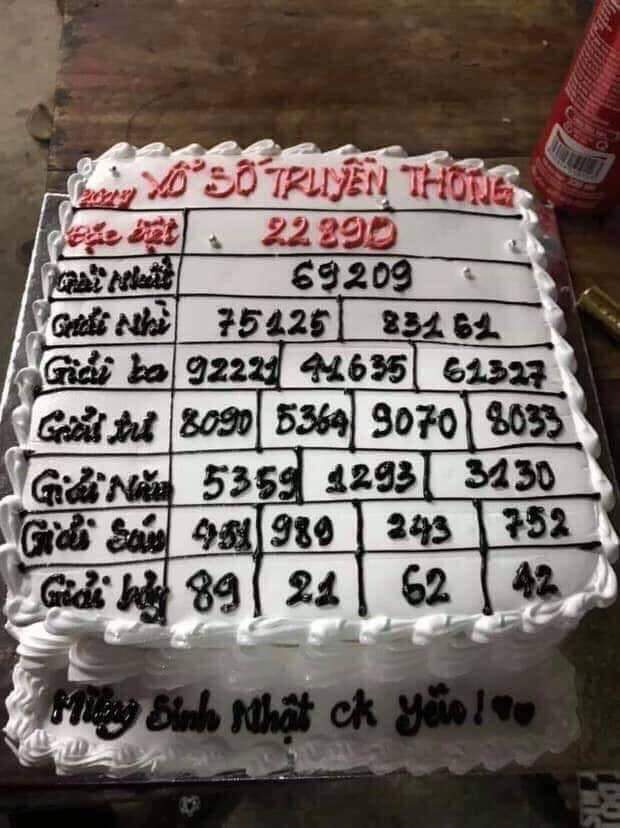 XỔ SỐ TRUYỀN THỐNG
Đặc biệt 22890
Giải Nhất 69209
Giải Nhì 75125 83161
Giải ba 92221 41635 61327
Giải tư 8090 5364 9070 8033
Giải Năm 5359 1293 3130
Giải Sáu 451 989 243 752
Giải bảy 89 21 62 42
Mừng Sinh Nhật ck yêu!